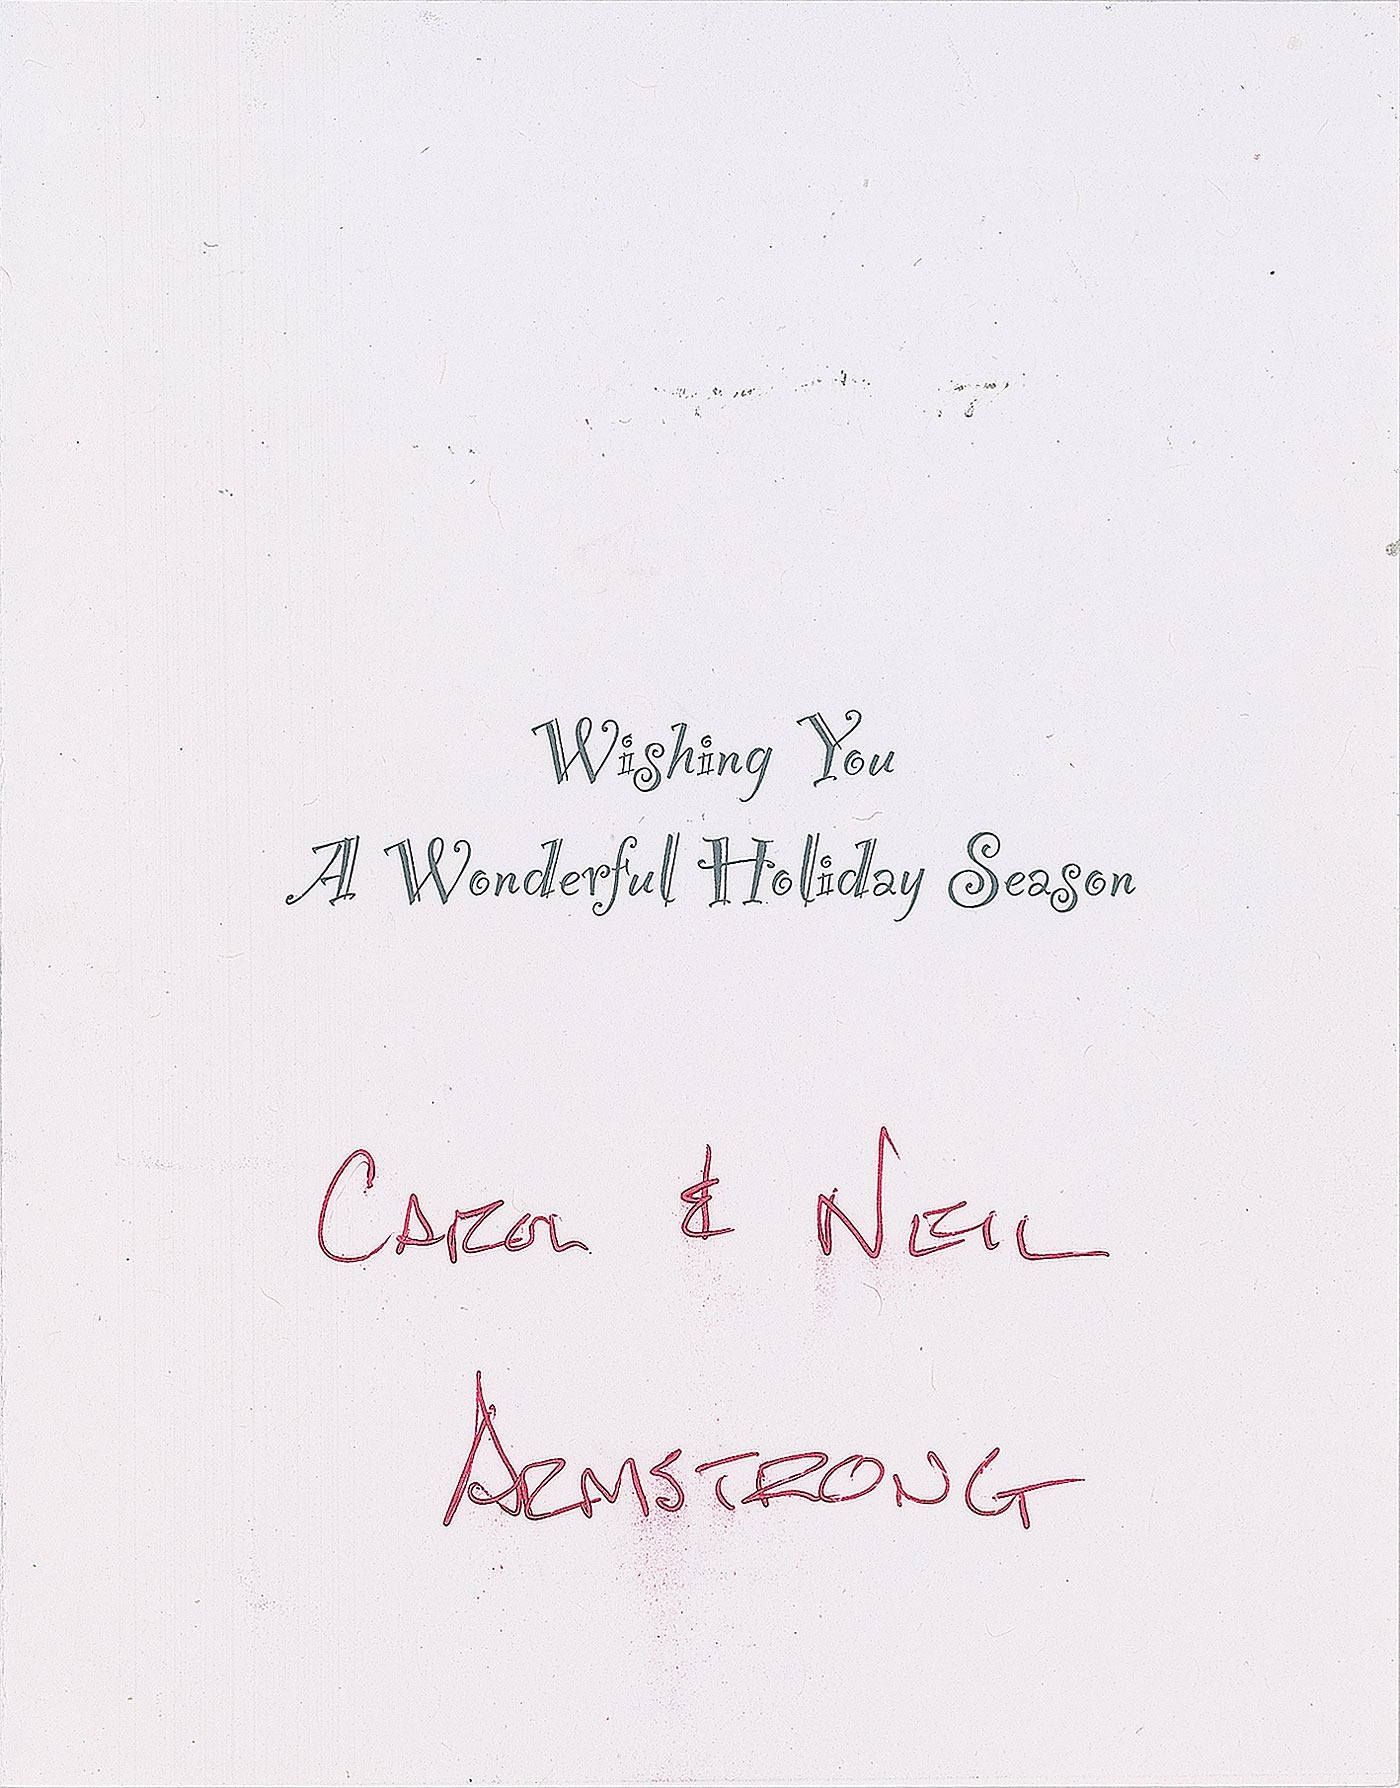 Wishing You
A Wonderful Holiday Season
CAROL & NEIL
ARMSTRONG